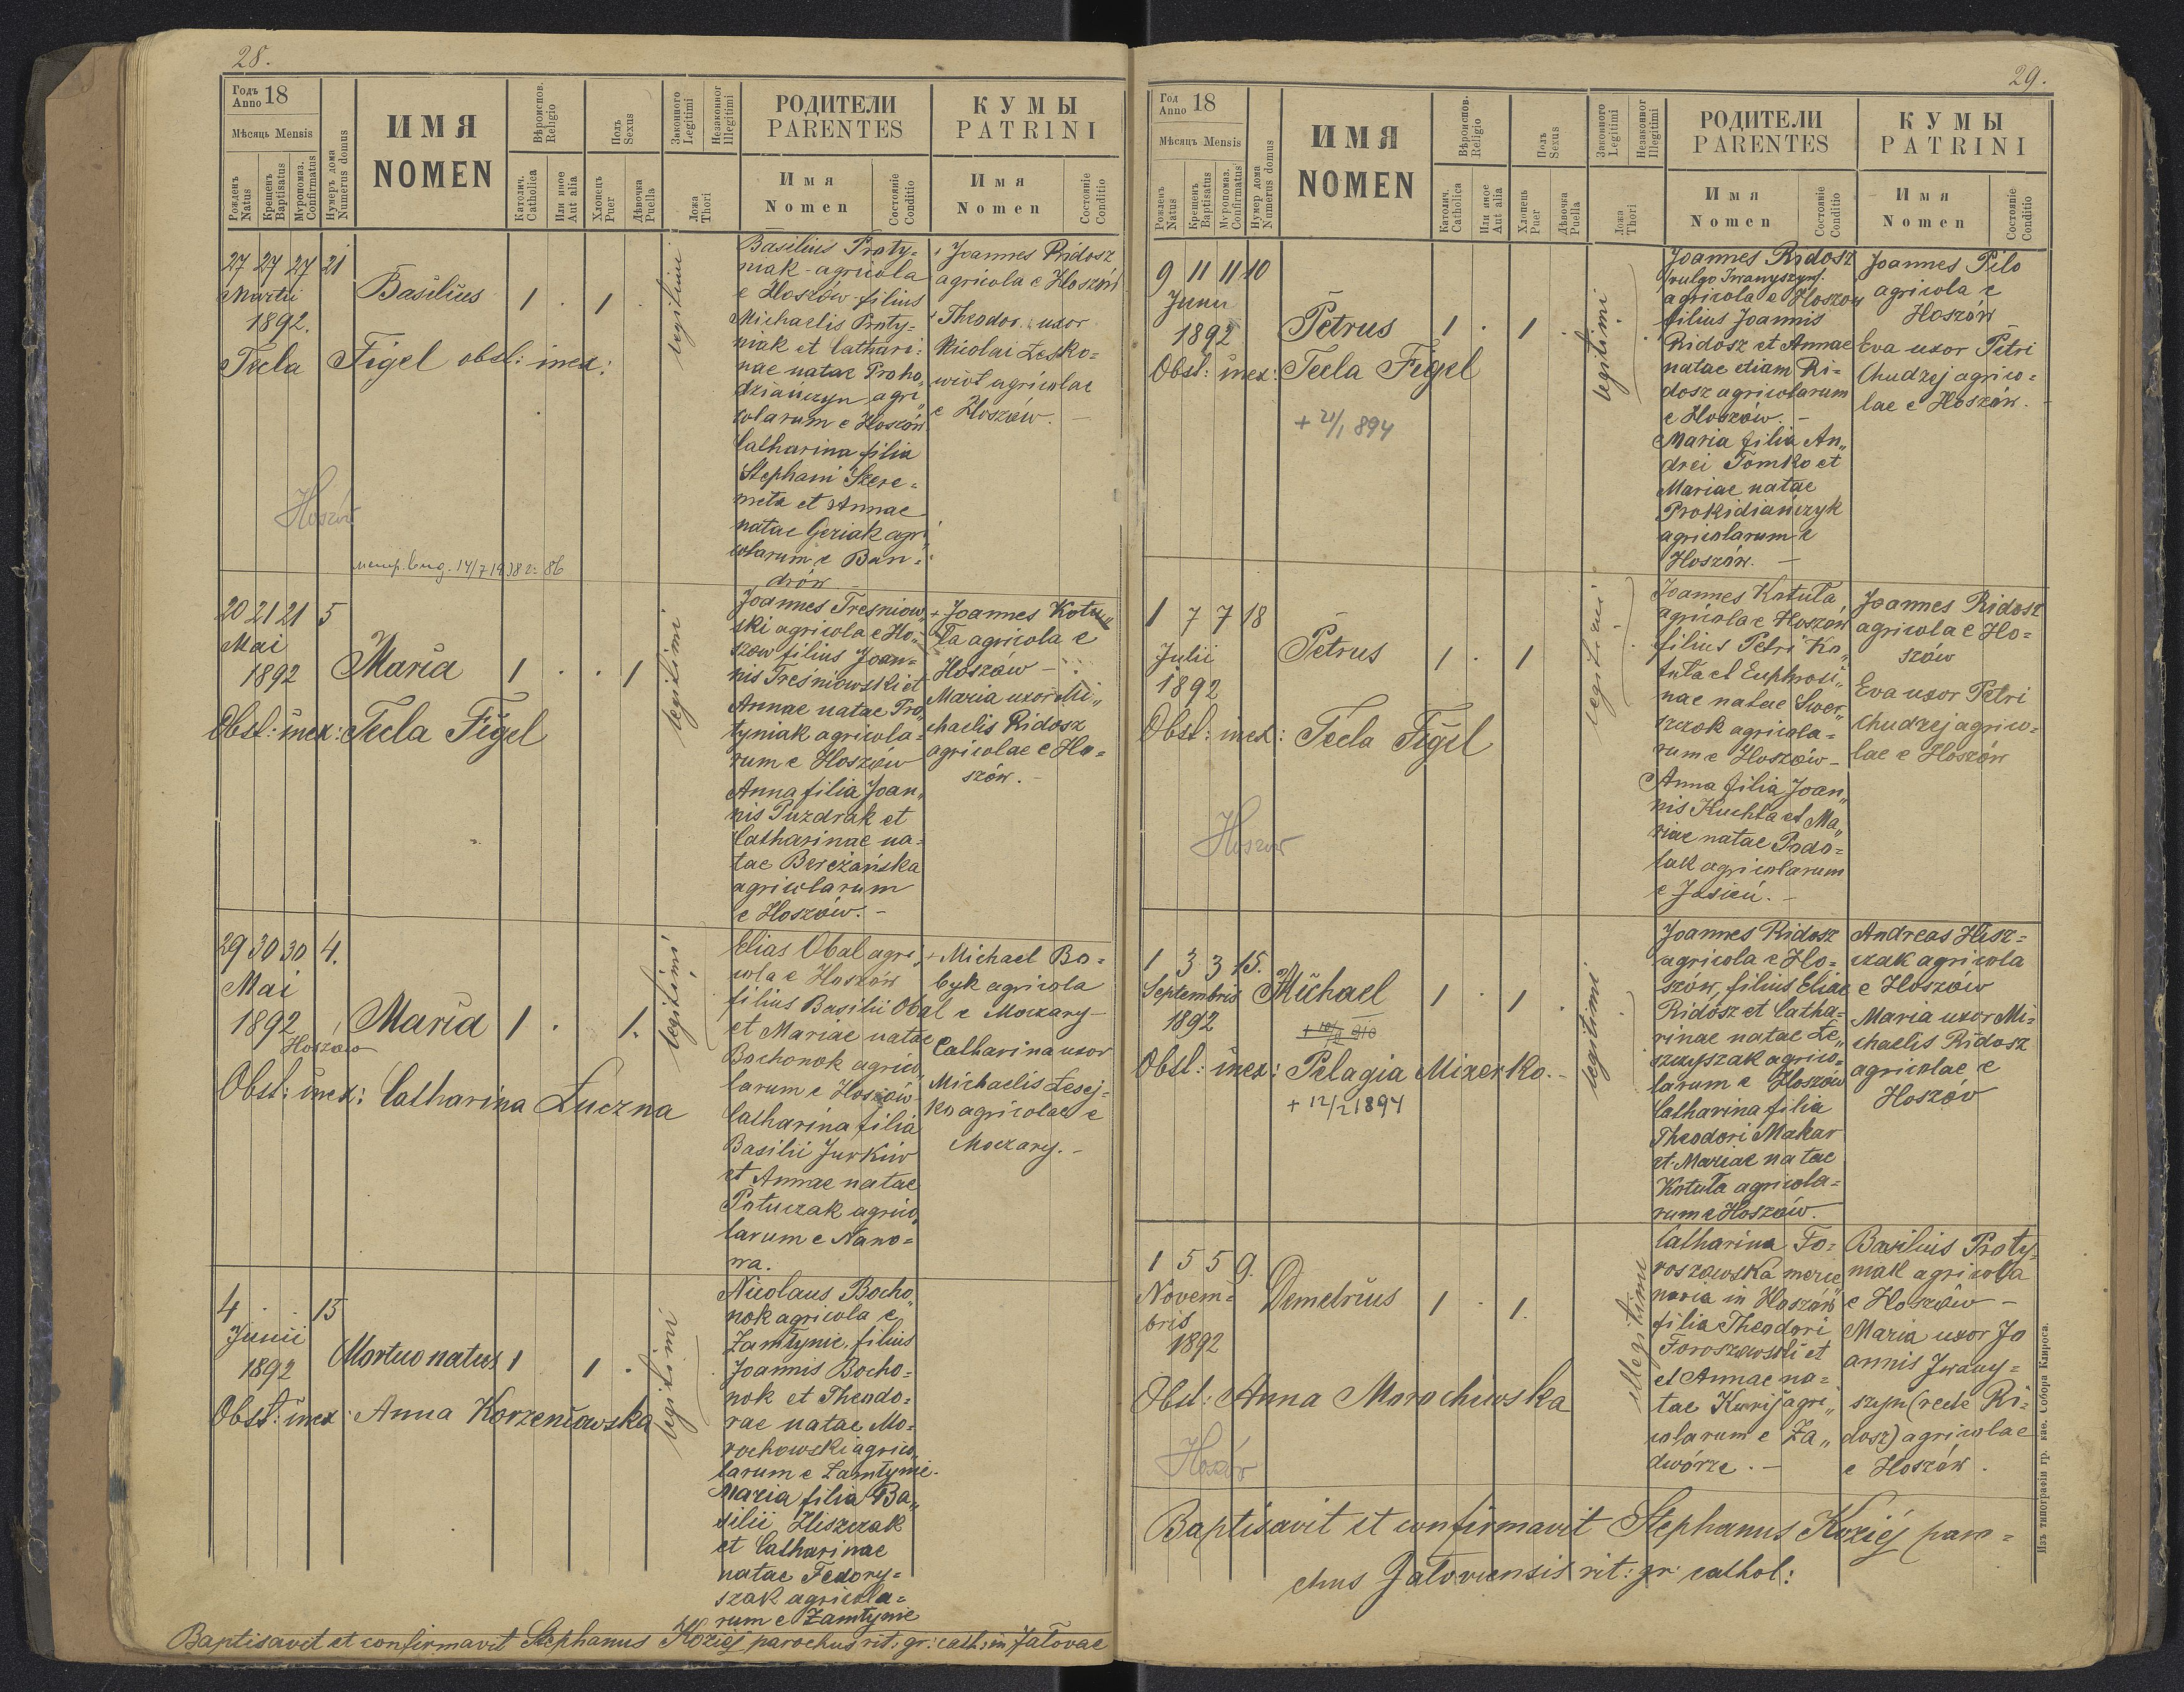 28.
Годъ
Anno 18
Мѣсяць Mensis
Рожденъ
Natus
Крещенъ
Baptisatus
Мѵропомаз.
Confirmatus
Нумеръ дома
Numerus domus
ИМЯ
NOMEN
Вѣроиспов.
Religio
Католич.
Catholica
Или иное
Aut alia
Полъ
Sexus
Хлопецъ
Puer
Дѣвочка
Puella
Законного
Legitimi
Незаконног
Illegitimi
Ложа
Thori
РОДИТЕЛИ
PARENTES
Имя
Nomen
Состояніе
Conditio
КУМЫ
PATRINI
Имя
Nomen
Состояніе
Conditio
27 27 27 21
Martii
1892.
Basilius 1 . 1 .
Tecla Figel obst: inex:
legitimi
Hoszów
14/7 1938 86
Basilius Proty=
niak - agricola
e Hoszów filius
Michaelis Proty=
niak et Cathari=
nae natae Proho„
dziańczyn agri„
colarum e Hoszów
Catharina filia
Stephani Szere=
meta et Annae
natae Geziak agri„
colarum e Ban=
drów
+ Joannes Ridosz
agricola e Hoszów
+ Theodor. uxor
Nicolai Lesko=
wiot agricolae
e Hoszów. -
20 21 21 5
Mai
1892
Maria 1 . . 1
Obst: inex: Tecla Figel
legitimi
Joannes Tresniow„
ski agricola e Ho=
szów filius Joan=
nis Tresniowski et
Annae natae Pro„
tyniak agricola=
rum e Hoszów
Anna filia Joan„
nis Puzdrak et
Catharinae na=
tae Bereżańska
agricolarum
e Hoszów. -
+ Joannes Kotu„
ła agricola e
Hoszów -
Maria uxor Mi„
chaelis Ridosz
agricolae e Ho=
szów. -
29 30 30 4.
Mai
1892
Hoszów
Maria 1 . 1.
Obst: inex: Catharina Łuczna
legitimi
Elias Obal agri„
cola e Hoszów
filius Basilii Obal
et Mariae natae
Bochonok agrico„
larum e Hoszów
Catharina filia
Basilii Jurkiw
et Annae natae
Potuczak agrico„
larum e Nano=
wa.
+ Michael Bo=
byk agricola
e Moczary -
Catharina uxor
Michaelis Lesej=
ko agricolae e
Moczary. -
4 . . 15
Junii
1892
Mortuo natus 1 1 .
Obst: inex: Anna Korzeniowska
legitimi
Nicolaus Bocho„
nok agricola e
Żamłynie, filius
Joannis Bocho=
nok et Theodo=
rae natae Mo=
rochowski agrico„
larum e Żamłynie.
Maria filia Ba„
silii Hiszczak
et Catharinae
natae Fedory=
szak agricola=
rum e Żamłynie
Baptisavit et confirmavit Stephanus Koziej parochus rit: gr: cath: in Jałowe
29.
Год
Anno 18
Мѣсяцъ Mensis
Рожден
Natus
Крещенъ
Baptisatus
Мѵропомаз.
Confirmatus
Нумер дома
Numerus domus
ИМЯ
NOMEN
Вѣроиспов.
Religio
Католич.
Catholica
Или иное
Aut alia
Полъ
Sexus
Хлопець
Puer
Дѣвочка
Puella
Законного
Legitimi
Незаконног
Illegitimi
Ложа
Thori
РОДИТЕЛИ
PARENTES
Имя
Nomen
Состояніе
Conditio
КУМЫ
PATRINI
Имя
Nomen
Состояніе
Conditio
9 11 11 10
Junii
1892
Petrus 1 . 1 .
Obst: inex: Tecla Figel
+ 21/1 894
legitimi
Joannes Ridosz
(vulgo Iwanyszyn)
agricola e Hoszów
filius Joannis
Ridosz et Annae
natae etiam Ri=
dosz agricolarum
e Hoszów. -
Maria filia An„
drei Tomko et
Mariae natae
Prokidiańczyk
agricolarum e
Hoszów. -
Joannes Piło
agricola e
Hoszów
Eva uxor Petri
Chudzej agrico=
lae e Hoszów. -
1 7 7 18
Julii
1892
Petrus 1 . 1
Obst: inex: Tecla Figel
Hoszów
legitimi
Joannes Kotuła
agricola e Hoszów
filius Petri Ko„
tuła et Euphrosi„
nae natae Swer„
szczok agricola=
rum e Hoszów -
Anna filia Joan„
nis Kuchta et Ma„
riae natae Podo=
lak agricolarum
e Jasień. -
Joannes Ridosz
agricola e Ho=
szów
Eva uxor Petri
Chudzej agrico=
lae e Hoszów
1 3 3 15.
Septembris
1892
Michael 1 . 1 .
Obst: inex: Pelagia Mixerko. -
+ 12/2 1894
legitimi
Joannes Ridosz
agricola e Ho=
szów, filius Eliae
Ridosz et Catha=
rinae natae Le„
szczyszak agrico=
larum e Hoszów
Catharina filia
Theodori Makar
et Mariae natae
Kotuła agricola=
rum e Hoszów.
Andreas Hisz=
czak agricola
e Hoszów
Maria uxor Mi=
chaelis Ridosz
agricolae e
Hoszów
1 5 5 9.
Novem=
bris
1892
Demetrius 1 . 1.
Obst: Anna Morochiwska
Hoszów
illegitimi
Catharina Fo=
roszowska merce„
naria in Hoszów
filia Theodori
Foroszowski et
et Annae na=
tae Kurij agri„
colarum e Za„
dwórze. -
Basilius Proty=
niak agricola
e Hoszów -
Maria uxor Jo
annis Iwany=
szyn (recte Ri=
dosz) agricolae
e Hoszów.
Baptisavit et confirmavit Stephanus Koziej paro=
chus Jałoviensis rit: gr: cathol:
Изъ типографіи гр. каѳ. Собора Клироса.